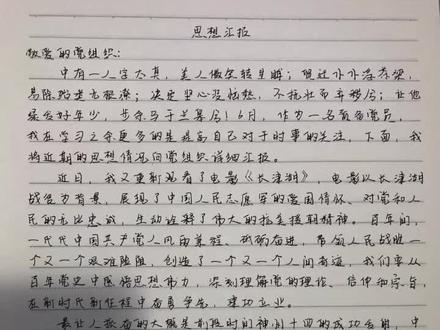 思想汇报
敬爱的党组织：
中有一人字太真，美人
决定坚心没
好年少，6月，作为一名预备党员，
我在学习之余更多的是提高自己对于时事的关注，下面，我
将近期的思想情况向党组织详细汇报。
近日，我又重新观看了电影《长津湖》，电影以长津湖
战役为背景，展现了中国人民志愿军的爱国情怀、对党和人
民的无比忠诚，生动诠释了伟大的抗美援朝精神。百年间，
一代代中国共产党人风雨兼程、砥砺奋进，带领人民战胜一
个又一个艰难险阻，创造了一个又一个人间奇迹，我们要从
百年党史中感悟思想伟力，深刻理解党的理论、信仰和宗旨，
在新时代新征程中奋勇争先，建功立业。
最让人振奋的大概是前段时间神舟十四的成功发射，中